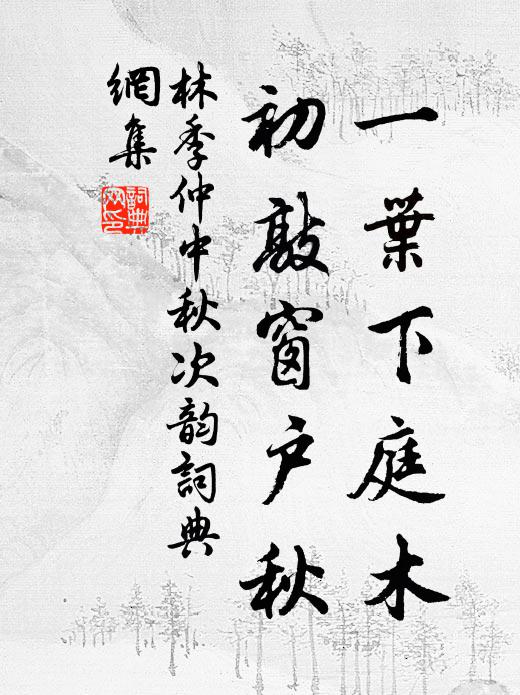 一葉下庭木
初敲窗户秋
林季仲中秋次韵詞典
網集
詞典
网印